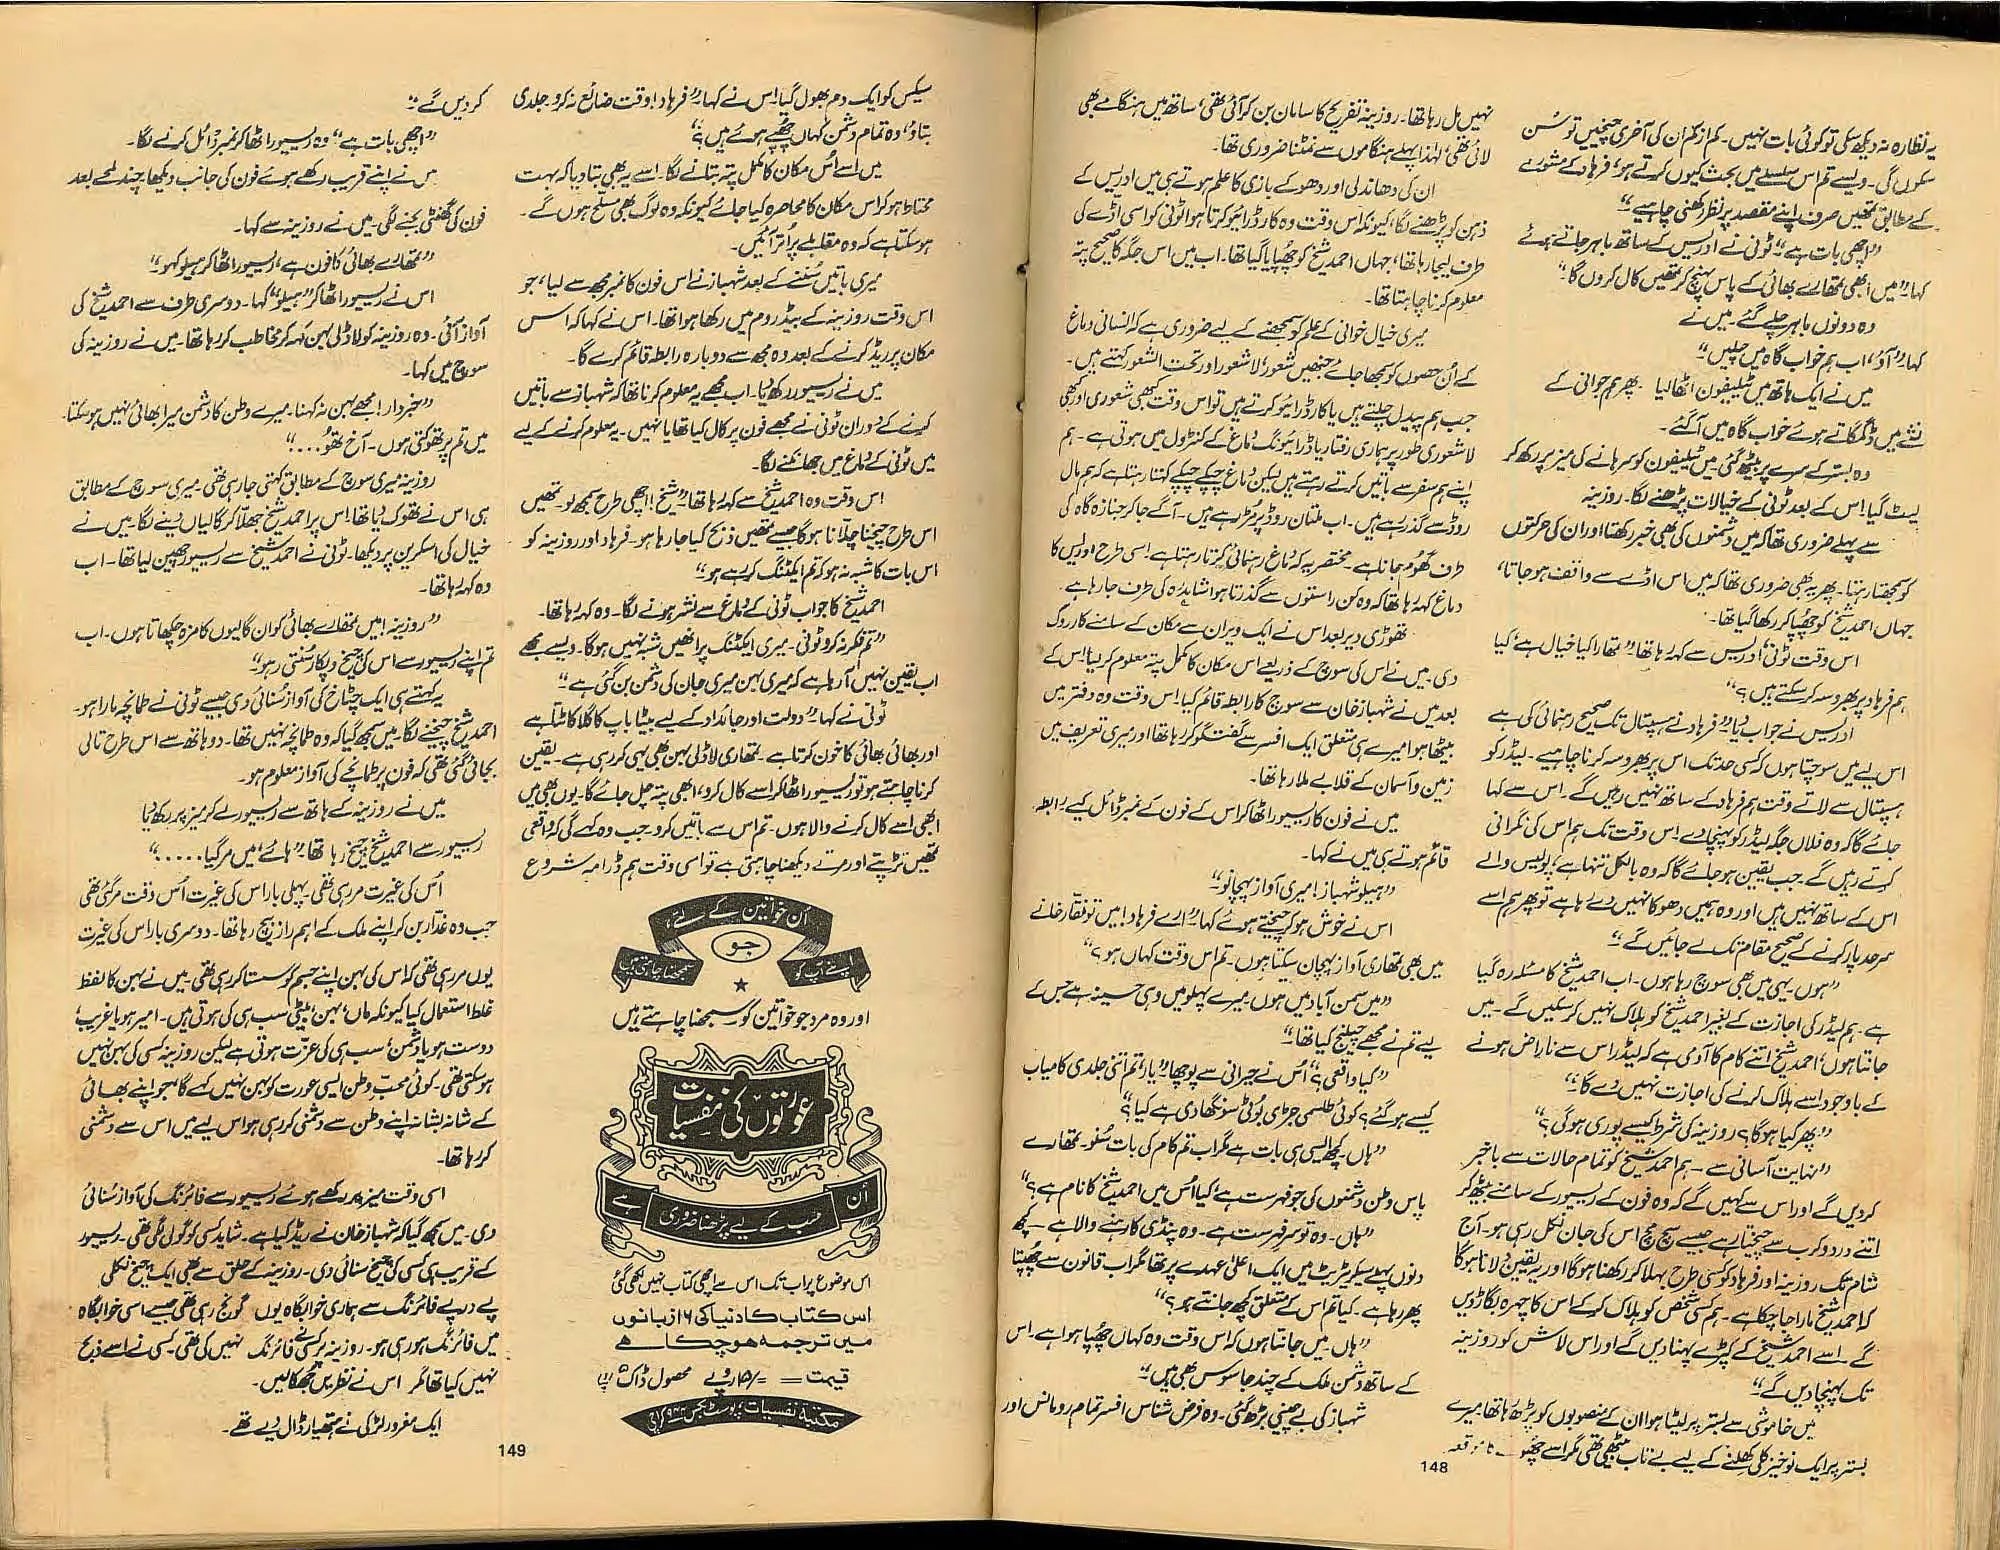 یہ نظارہ نہ دیکھ سکی تو کوئی بات نہیں۔ کم از کم ان کی آخری چیخیں تو سُن
سکوں گی۔ ویسے تم اس سلسلے میں بحث کیوں کرتے ہو، فرہاد کے مشورے
کے مطابق تمھیں صرف اپنے مقصد پر نظر رکھنی چاہیے۔"
"اچھی بات ہے۔" ٹونی نے ادریس کے ساتھ باہر جاتے ہوئے
کہا۔ "میں ابھی تمھارے بھائی کے پاس پہنچ کر تمھیں کال کروں گا۔"
وہ دونوں باہر چلے گئے۔ میں نے
کہا۔ "آؤ، اب ہم خواب گاہ میں چلیں۔"
میں نے ایک ہاتھ میں ٹیلیفون اٹھا لیا۔ پھر ہم جوانی کے
نشے میں ڈگمگاتے ہوئے خواب گاہ میں آگئے۔
وہ بستر کے سرے پر بیٹھ گئی۔ میں ٹیلیفون کو سرہانے کی میز پر رکھ کر
لیٹ گیا۔ اس کے بعد ٹونی کے خیالات پڑھنے لگا۔ روزینہ
سے پہلے ضروری تھا کہ میں دشمنوں کی بھی خبر رکھتا اور ان کی حرکتوں
کو سمجھتا رہتا۔ پھر یہ بھی ضروری تھا کہ میں اس اڈے سے واقف ہو جاتا،
جہاں احمد شیخ کو چھپا کر رکھا گیا تھا۔
اس وقت ٹونی، ادریس سے کہہ رہا تھا۔ "تمھارا کیا خیال ہے، کیا
ہم فرہاد پر بھروسہ کر سکتے ہیں؟"
ادریس نے جواب دیا۔ "فرہاد نے ہسپتال تک صحیح رہنمائی کی ہے
اس لیے میں سوچتا ہوں کہ کسی حد تک اس پر بھروسہ کرنا چاہیے۔ لیڈر کو
ہسپتال سے لاتے وقت ہم فرہاد کے ساتھ نہیں رہیں گے۔ اس سے کہا
جائے گا کہ وہ فلاں جگہ لیڈر کو پہنچا دے۔ اس وقت تک ہم اس کی نگرانی
کرتے رہیں گے۔ جب یقین ہو جائے گا کہ وہ بالکل تنہا ہے، پولیس والے
اس کے ساتھ نہیں ہیں اور وہ ہمیں دھوکا نہیں دے رہا ہے تو پھر ہم اسے
سرحد پار کرنے کے صحیح مقام تک لے جائیں گے۔"
"ہوں۔ یہی میں بھی سوچ رہا ہوں۔ اب احمد شیخ کا مسئلہ رہ گیا
ہے۔ ہم لیڈر کی اجازت کے بغیر احمد شیخ کو ہلاک نہیں کر سکیں گے۔ میں
جانتا ہوں، احمد شیخ اتنے کام کا آدمی ہے کہ لیڈر اس سے ناراض ہونے
کے باوجود اسے ہلاک کرنے کی اجازت نہیں دے گا۔"
"پھر کیا ہوگا؟ روزینہ کی شرط کیسے پوری ہوگی؟"
"نہایت آسانی سے۔ ہم احمد شیخ کو تمام حالات سے باخبر
کر دیں گے اور اس سے کہیں گے کہ وہ فون کے ریسیور کے سامنے بیٹھ کر
اتنے درد و کرب سے چیختا رہے جیسے سچ مچ اس کی جان نکل رہی ہو۔ آج
شام تک روزینہ اور فرہاد کو کسی طرح بہلا کر رکھنا ہوگا اور یہ یقین دلانا ہوگا
کہ احمد شیخ مارا جا چکا ہے۔ ہم کسی شخص کو ہلاک کر کے اس کا چہرہ بگاڑ دیں
گے۔ اسے احمد شیخ کے کپڑے پہنا دیں گے اور اس لاش کو روزینہ
تک پہنچا دیں گے۔"
میں خاموشی سے بستر پر لیٹا ہوا ان کے منصوبوں کو پڑھ رہا تھا۔ میرے
بستر پر ایک نوخیز کلی کھلنے کے لیے بے تاب بیٹھی تھی مگر اسے چھونے کا موقعہ
نہیں مل رہا تھا۔ روزینہ تفریح کا سامان بن کر آئی تھی، ساتھ میں ہنگامے بھی
لائی تھی، لہٰذا پہلے ہنگاموں سے نمٹنا ضروری تھا۔
ان کی دھاندلی اور دھوکے بازی کا علم ہوتے ہی میں ادریس کے
ذہن کو پڑھنے لگا، کیونکہ اس وقت وہ کار ڈرائیو کرتا ہوا ٹونی کو اسی اڈے کی
طرف لیجا رہا تھا، جہاں احمد شیخ کو چھپایا گیا تھا۔ اب میں اس جگہ کا صحیح پتہ
معلوم کرنا چاہتا تھا۔
میری خیال خوانی کے علم کو سمجھنے کے لیے ضروری ہے کہ انسانی دماغ
کے اُن حصوں کو سمجھا جائے جنھیں شعور، لاشعور اور تحت الشعور کہتے ہیں۔
جب ہم پیدل چلتے ہیں یا کار ڈرائیو کرتے ہیں تو اس وقت کبھی شعوری اور کبھی
لاشعوری طور پر ہماری رفتار یا ڈرائیونگ دماغ کے کنٹرول میں ہوتی ہے۔ ہم
اپنے ہم سفر سے باتیں کرتے رہتے ہیں لیکن دماغ چپکے چپکے کہتا رہتا ہے کہ ہم مال
روڈ سے گذر رہے ہیں۔ اب ملتان روڈ پر مُڑ رہے ہیں۔ آگے جا کر جنازہ گاہ کی
طرف گھوم جانا ہے۔ مختصر یہ کہ دماغ رہنمائی کرتا رہتا ہے اسی طرح ادریس کا
دماغ کہہ رہا تھا کہ وہ کن راستوں سے گذرتا ہوا شاہدرہ کی طرف جا رہا ہے۔
تھوڑی دیر بعد اس نے ایک ویران سے مکان کے سامنے کار روک
دی۔ میں نے اس کی سوچ کے ذریعے اس مکان کا مکمل پتہ معلوم کر لیا۔ اس کے
بعد میں نے شہباز خان سے سوچ کا رابطہ قائم کیا۔ اس وقت وہ دفتر میں
بیٹھا ہوا میرے ہی متعلق ایک افسر سے گفتگو کر رہا تھا اور میری تعریف میں
زمین و آسمان کے قلابے ملا رہا تھا۔
میں نے فون کا ریسیور اٹھا کر اس کے فون کے نمبر ڈائل کیے۔ رابطہ
قائم ہوتے ہی میں نے کہا۔
"ہیلو شہباز! میری آواز پہچانو۔"
اس نے خوش ہو کر چیختے ہوئے کہا۔ "ارے فرہاد! میں تو نقار خانے
میں بھی تمھاری آواز پہچان سکتا ہوں۔ تم اس وقت کہاں ہو؟"
"میں سمن آباد میں ہوں۔ میرے پہلو میں وہی حسینہ ہے جس کے
لیے تم نے مجھے چیلنج کیا تھا۔"
"کیا واقعی؟" اُس نے حیرانی سے پوچھا۔ "یار، تم اتنی جلدی کامیاب
کیسے ہو گئے؟ کوئی طلسمی جڑی بوٹی سونگھا دی ہے کیا؟"
"ہاں۔ کچھ ایسی ہی بات ہے مگر اب تم کام کی بات سُنو۔ تمھارے
پاس وطن دشمنوں کی جو فہرست ہے، کیا اُس میں احمد شیخ کا نام ہے؟"
"ہاں۔ وہ تو سرفہرست ہے۔ وہ پنڈی کا رہنے والا ہے۔ کچھ
دنوں پہلے سیکریٹریٹ میں ایک اعلٰی عہدے پر تھا مگر اب قانون سے چھپتا
پھر رہا ہے۔ کیا تم اس کے متعلق کچھ جانتے ہو؟"
"ہاں۔ میں جانتا ہوں کہ اس وقت وہ کہاں چھپا ہوا ہے۔ اس
کے ساتھ دشمن ملک کے چند جاسوس بھی ہیں۔"
شہباز کی بے چینی بڑھ گئی۔ وہ فرض شناس افسر تمام رومانس اور
148
سیکس کو ایک دم بھول گیا۔ اس نے کہا۔ "فرہاد! وقت ضائع نہ کرو۔ جلدی
بتاؤ، وہ تمام دشمن کہاں چھپے ہوئے ہیں؟"
میں اسے اُس مکان کا مکمل پتہ بتانے لگا۔ اسے یہ بھی بتا دیا کہ بہت
محتاط ہو کر اس مکان کا محاصرہ کیا جائے کیونکہ وہ لوگ بھی مسلح ہوں گے۔
ہو سکتا ہے کہ وہ مقابلے پر اُتر آئیں۔
میری باتیں سُننے کے بعد شہباز نے اس فون کا نمبر مجھ سے لیا، جو
اس وقت روزینہ کے بیڈ روم میں رکھا ہوا تھا۔ اس نے کہا کہ اس
مکان پر ریڈ کرنے کے بعد وہ مجھ سے دوبارہ رابطہ قائم کرے گا۔
میں نے ریسیور رکھ دیا۔ اب مجھے یہ معلوم کرنا تھا کہ شہباز سے باتیں
کرنے کے دوران ٹونی نے مجھے فون پر کال کیا تھا یا نہیں۔ یہ معلوم کرنے کے لیے
میں ٹونی کے دماغ میں جھانکنے لگا۔
اس وقت وہ احمد شیخ سے کہہ رہا تھا۔ "شیخ! اچھی طرح سمجھ لو۔ تمھیں
اس طرح چیخنا چلّانا ہوگا جیسے تمھیں ذبح کیا جا رہا ہو۔ فرہاد اور روزینہ کو
اس بات کا شبہ نہ ہو کہ تم ایکٹنگ کر رہے ہو۔"
احمد شیخ کا جواب ٹونی کے دماغ سے نشر ہونے لگا۔ وہ کہہ رہا تھا۔
"تم فکر نہ کرو ٹونی۔ میری ایکٹنگ پر انھیں شبہ نہیں ہوگا۔ ویسے مجھے
اب یقین نہیں آ رہا ہے کہ میری بہن میری جان کی دشمن بن گئی ہے۔"
ٹونی نے کہا۔ "دولت اور جائداد کے لیے بیٹا باپ کا گلا کاٹتا ہے
اور بھائی بھائی کا خون کرتا ہے۔ تمھاری لاڈلی بہن بھی یہی کر رہی ہے۔ یقین
کرنا چاہتے ہو تو ریسیور اٹھا کر اسے کال کرو، ابھی پتہ چل جائے گا۔ یوں بھی میں
ابھی اسے کال کرنے والا ہوں۔ تم اس سے باتیں کرو۔ جب وہ کہے گی کہ واقعی
تمھیں تڑپتے اور مرتے دیکھنا چاہتی ہے تو اسی وقت ہم ڈرامہ شروع
اُن خواتین کے لئے،
جو
اپنے آپ کو
سمجھنا چاہتی ہیں
اور وہ مرد جو خواتین کو سمجھنا چاہتے ہیں
عورتوں کی نفسیات
اُن
سب کے لیے پڑھنا ضروری
ہے
اس موضوع پر اب تک اس سے اچھی کتاب نہیں لکھی گئی
اس کتاب کا دنیا کی ۱۶ زبانوں
میں ترجمہ ہو چکا ہے
قیمت ۱۵/= روپے محصول ڈاک
مکتبۂ نفسیات، پوسٹ بکس ۹۴۴ کراچی
کر دیں گے۔"
"اچھی بات ہے۔" وہ ریسیور اٹھا کر نمبر ڈائل کرنے لگا۔
میں نے اپنے قریب رکھے ہوئے فون کی جانب دیکھا، چند لمحے بعد
فون کی گھنٹی بجنے لگی۔ میں نے روزینہ سے کہا۔
"تمھارے بھائی کا فون ہے، ریسیور اٹھا کر ہیلو کہو۔"
اس نے ریسیور اٹھا کر "ہیلو" کہا۔ دوسری طرف سے احمد شیخ کی
آواز آئی۔ وہ روزینہ کو لاڈلی بہن کہہ کر مخاطب کر رہا تھا۔ میں نے روزینہ کی
سوچ میں کہا۔
"خبردار! مجھے بہن نہ کہنا۔ میرے وطن کا دشمن میرا بھائی نہیں ہو سکتا۔
میں تم پر تھوکتی ہوں۔ آخ تھو۔۔۔۔"
روزینہ میری سوچ کے مطابق کہتی جا رہی تھی۔ میری سوچ کے مطابق
ہی اس نے تھوک دیا تھا۔ اس پر احمد شیخ جھلّا کر گالیاں دینے لگا۔ میں نے
خیال کی اسکرین پر دیکھا۔ ٹونی نے احمد شیخ سے ریسیور چھین لیا تھا۔ اب
وہ کہہ رہا تھا۔
"روزینہ! میں تمھارے بھائی کو ان گالیوں کا مزہ چکھاتا ہوں۔ اب
تم اپنے ریسیور سے اس کی چیخ و پکار سُنتی رہو۔"
یہ کہتے ہی ایک چٹاخ کی آواز سُنائی دی جیسے ٹونی نے طمانچہ مارا ہو۔
احمد شیخ چیخنے لگا۔ میں سمجھ گیا کہ وہ طمانچہ نہیں تھا۔ دو ہاتھ سے اس طرح تالی
بجائی گئی تھی کہ فون پر طمانچے کی آواز معلوم ہو۔
میں نے روزینہ کے ہاتھ سے ریسیور لے کر میز پر رکھ دیا
ریسیور سے احمد شیخ چیخ رہا تھا۔ "ہائے، میں مر گیا۔۔۔۔۔"
اُس کی غیرت مر رہی تھی۔ پہلی بار اس کی غیرت اُس وقت مر گئی تھی
جب وہ غدار بن کر اپنے ملک کے اہم راز بیچ رہا تھا۔ دوسری بار اس کی غیرت
یوں مر رہی تھی کہ اس کی بہن اپنے جسم کو سستا کر رہی تھی۔ میں نے بہن کا لفظ
غلط استعمال کیا کیونکہ ماں، بہن، بیٹی سب ہی کی ہوتی ہیں۔ امیر ہو یا غریب،
دوست ہو یا دشمن، سب ہی کی عزّت ہوتی ہے لیکن روزینہ کسی کی بہن نہیں
ہو سکتی تھی۔ کوئی محبِّ وطن ایسی عورت کو بہن نہیں کہے گا، جو اپنے بھائی
کے شانہ بشانہ اپنے وطن سے دشمنی کر رہی ہو اس لیے میں اس سے دشمنی
کر رہا تھا۔
اسی وقت میز پر رکھے ہوئے ریسیور سے فائرنگ کی آواز سُنائی
دی۔ میں سمجھ گیا کہ شہباز خان نے ریڈ کیا ہے۔ شاید کسی کو گولی لگی تھی۔ ریسیور
کے قریب ہی کسی کی چیخ سنائی دی۔ روزینہ کے حلق سے بھی ایک چیخ نکلی
پے در پے فائرنگ سے ہماری خوابگاہ یوں گونج رہی تھی جیسے اسی خوابگاہ
میں فائرنگ ہو رہی ہو۔ روزینہ پر کسی نے فائرنگ نہیں کی تھی۔ کسی نے اسے ذبح
نہیں کیا تھا مگر اس نے نظریں جھکا لیں۔
ایک مغرور لڑکی نے ہتھیار ڈال دیے تھے۔
149